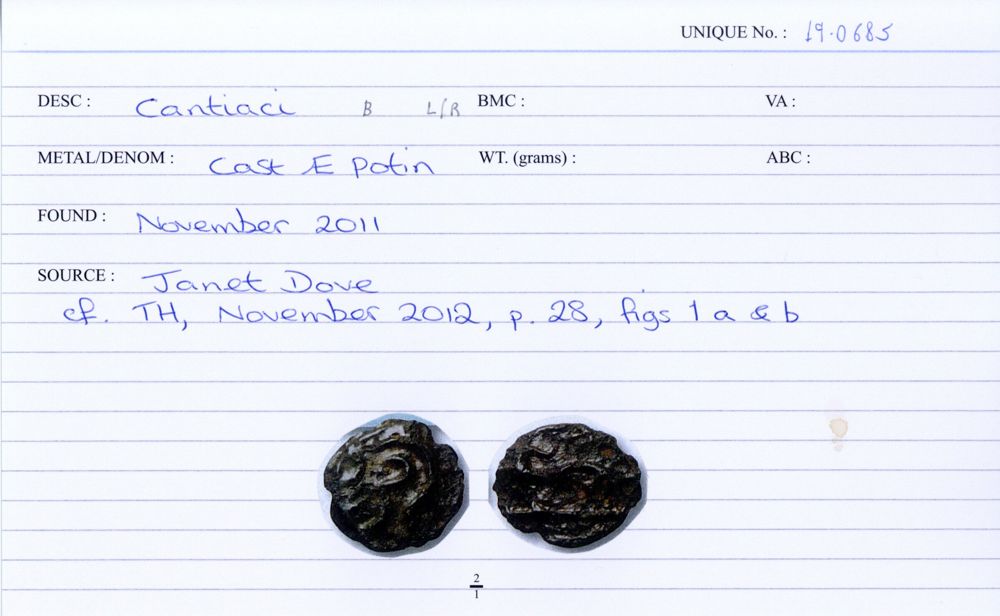 UNIQUE No. : 19.0685
DESC : Cantiaci B L/R BMC : VA :
METAL/DENOM : Cast Æ Potin WT. (grams) : ABC :
FOUND : November 2011
SOURCE : Janet Dove
cf. TH, November 2012, p. 28, figs 1 a & b
2
1